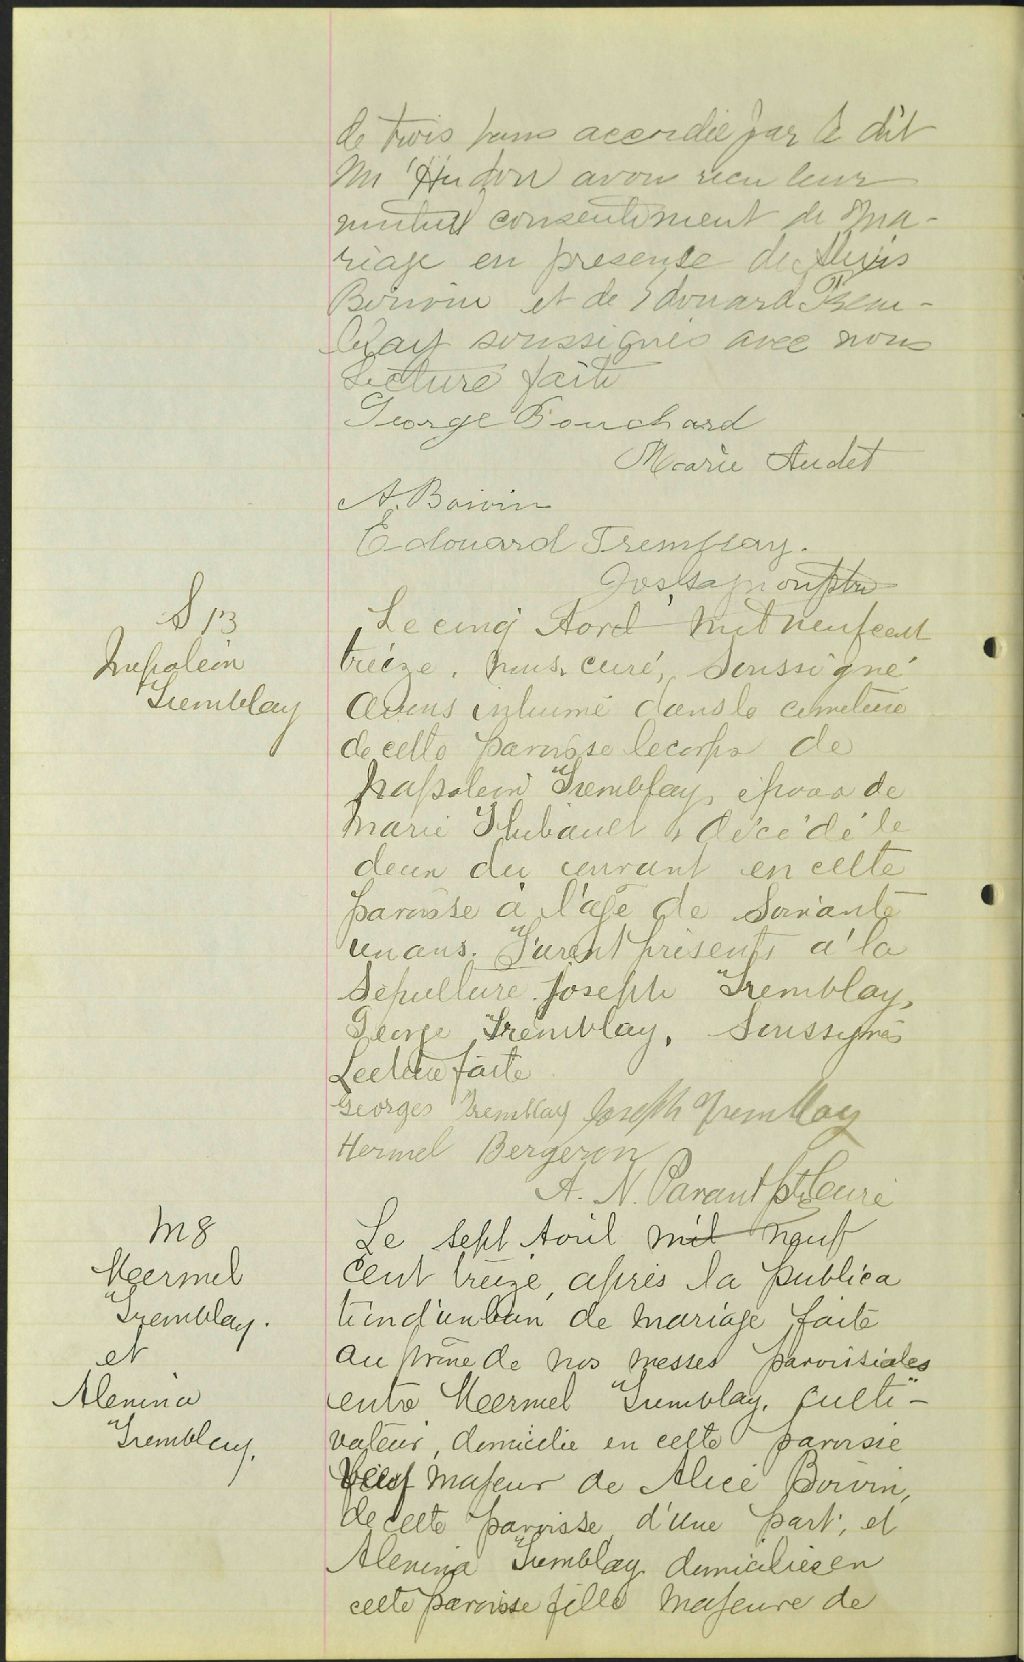 de trois bans accordée par le dit
Mr Hudon avons recu leur
mutuel consentiment de ma-
riage en presense de Alexis
Boivin et de Edouard Trem-
blay soussignés avec nous
Lecture faite
George Bouchard
Marie Audet
A. Boivin
Edouard Tremblay.
ptre
S 13
Napoleon
Tremblay
Le cinq Avril mil neuf cent
treize, nous, curé, soussigné
avons inhumé dans le cimetière
de cette paroisse le corps de
Napoleon Tremblay, époux de
Marie Thibault, décédé le
deux du courant en cette
paroisse à l'âge de soixante
un ans. Furent présents à la
sépulture Joseph Tremblay,
George Tremblay, soussignés
Lecture faite
Georges Tremblay Joseph Tremblay
Hermel Bergeron
A. N. Parant ptre Curé
M 8
Hermel
Tremblay.
et
Alenina
Tremblay.
Le sept Avril mil neuf
cent treize, après la publica
tion d'un ban de mariage faite
au prône de nos messes paroissiales
entre Hermel Tremblay, culti-
vateur, domicilié en cette paroisse
veuf majeur de Alice Boivin,
de cette paroisse, d'une part, et
Alenina Tremblay domiciliée en
cette paroisse fille majeure de